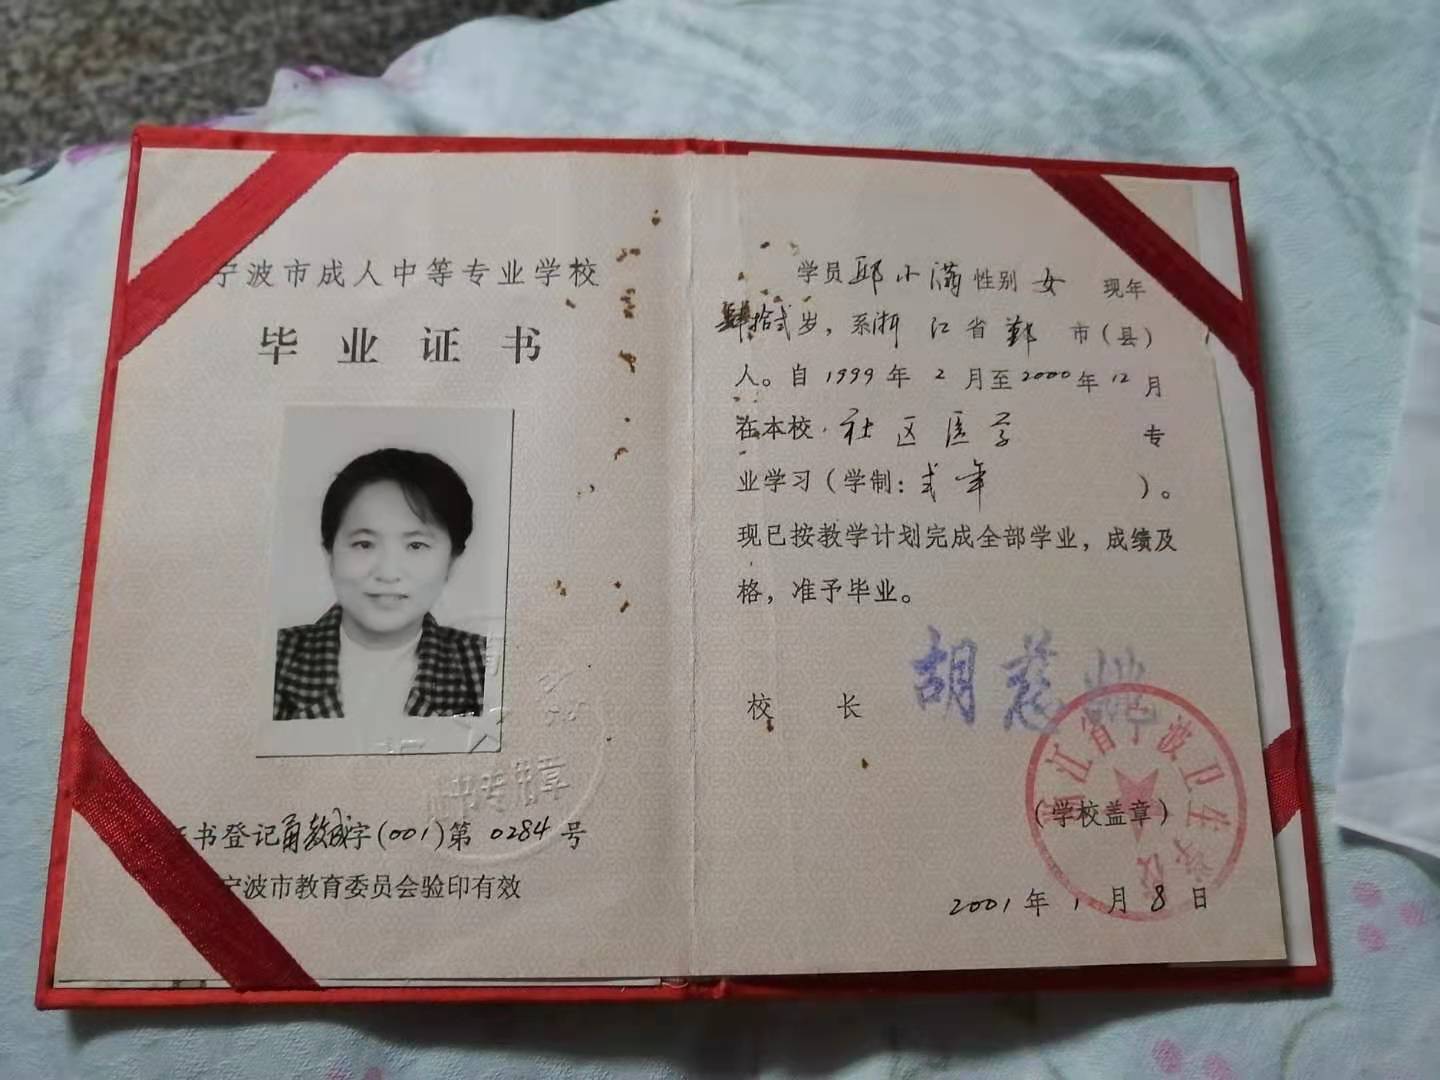 宁波市成人中等专业学校
毕业证书
书登记甬教成字(001)第 0284 号
宁波市教育委员会验印有效
专用章
学员 邱小满 性别 女 现年
肆拾弍岁，系浙江省鄞市(县)
人。自 1999 年 2 月至 2000 年 12 月
在本校 社区医学 专
业学习(学制：弍年)。
现已按教学计划完成全部学业，成绩及
格，准予毕业。
校长 胡慈
浙江省宁波卫生学校
(学校盖章)
2001 年 1 月 8 日